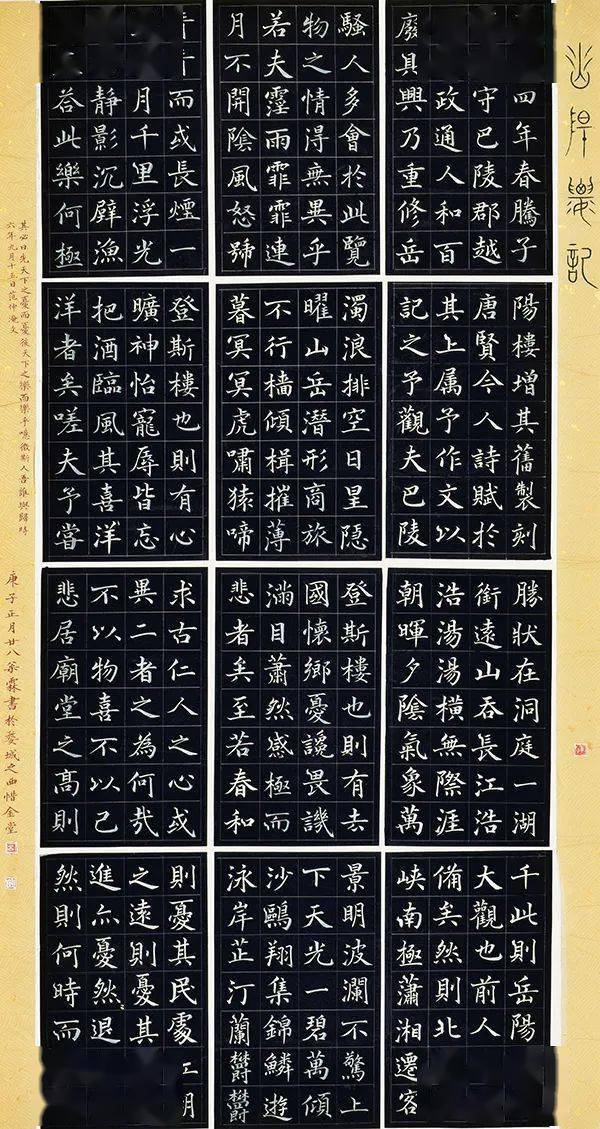 岳陽樓記
四年春騰子
守巴陵郡越
政通人和百
廢具興乃重修岳
陽樓增其舊製刻
唐賢今人詩賦於
其上属予作文以
記之予觀夫巴陵
勝狀在洞庭一湖
銜遠山吞長江浩
浩湯湯橫無際涯
朝暉夕陰氣象萬
千此則岳陽
大觀也前人
俻矣然則北
峽南極瀟湘遷客
騷人多會於此覽
物之情得無異乎
若夫霪雨霏霏連
月不開陰風怒號
濁浪排空日星隱
曜山岳潛形商旅
不行檣傾楫摧薄
暮冥冥虎嘯猿啼
登斯樓也則有去
國懷鄉憂讒畏譏
滿目蕭然感極而
悲者矣至若春和
景明波瀾不驚上
下天光一碧萬頃
沙鷗翔集錦鱗遊
泳岸芷汀蘭鬱鬱
而或長煙一
月千里浮光
靜影沉璧漁
荅此樂何極
登斯樓也則有心
曠神怡寵辱皆忘
把酒臨風其喜洋
洋者矣嗟夫予嘗
求古仁人之心或
異二者之為何哉
不以物喜不以己
悲居廟堂之高則
則憂其民處
之遠則憂其
進亦憂然退
然則何時而
其必曰先天下之憂而憂後天下之樂而樂乎噫微斯人吾誰與歸時
六年九月十五日范仲淹文
庚子正月廿八梁霖書於婺城之西惜金堂